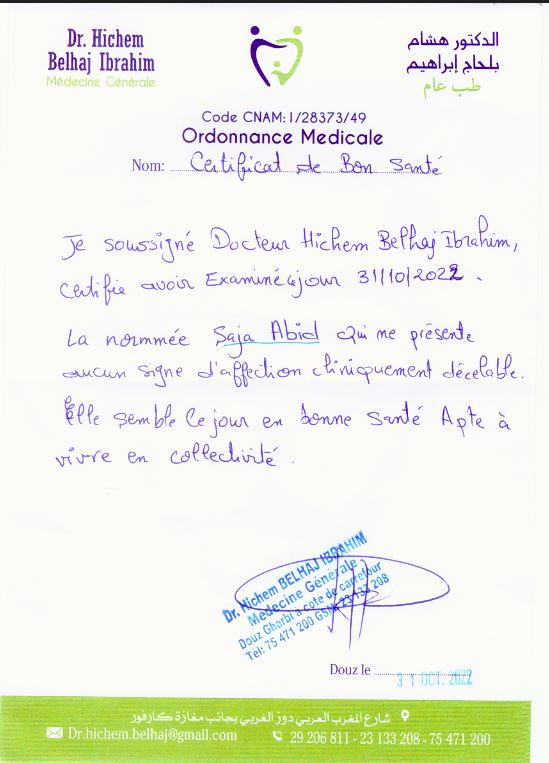 Dr. Hichem
Belhaj Ibrahim
Médecine Générale
الدكتور هشام
بلحاج إبراهيم
طب عام
Code CNAM:1/28373/49
Ordonnance Medicale
Nom: Certificat de Bon Santé
Je soussigné Docteur Hichem Belhaj Ibrahim,
Certifie avoir Examiné ce jour 31/10/2022.
La nommée Saja Abid Qui me présente
aucun signe d'affection cliniquement décelable.
Elle semble Ce jour en bonne Santé Apte à
vivre en collectivité.
Dr. Hichem BELHAJ IBRAHIM
Médecine Générale
Douz Gharbi à cote de carrefour
Tél: 75 471 200 GSM 23 133 208
Douz le 31 OCT. 2022
شارع المغرب العربي دوز الغربي بجانب مغازة كارفور
Dr.hichem.belhaj@gmail.com 29 206 811 - 23 133 208 - 75 471 200